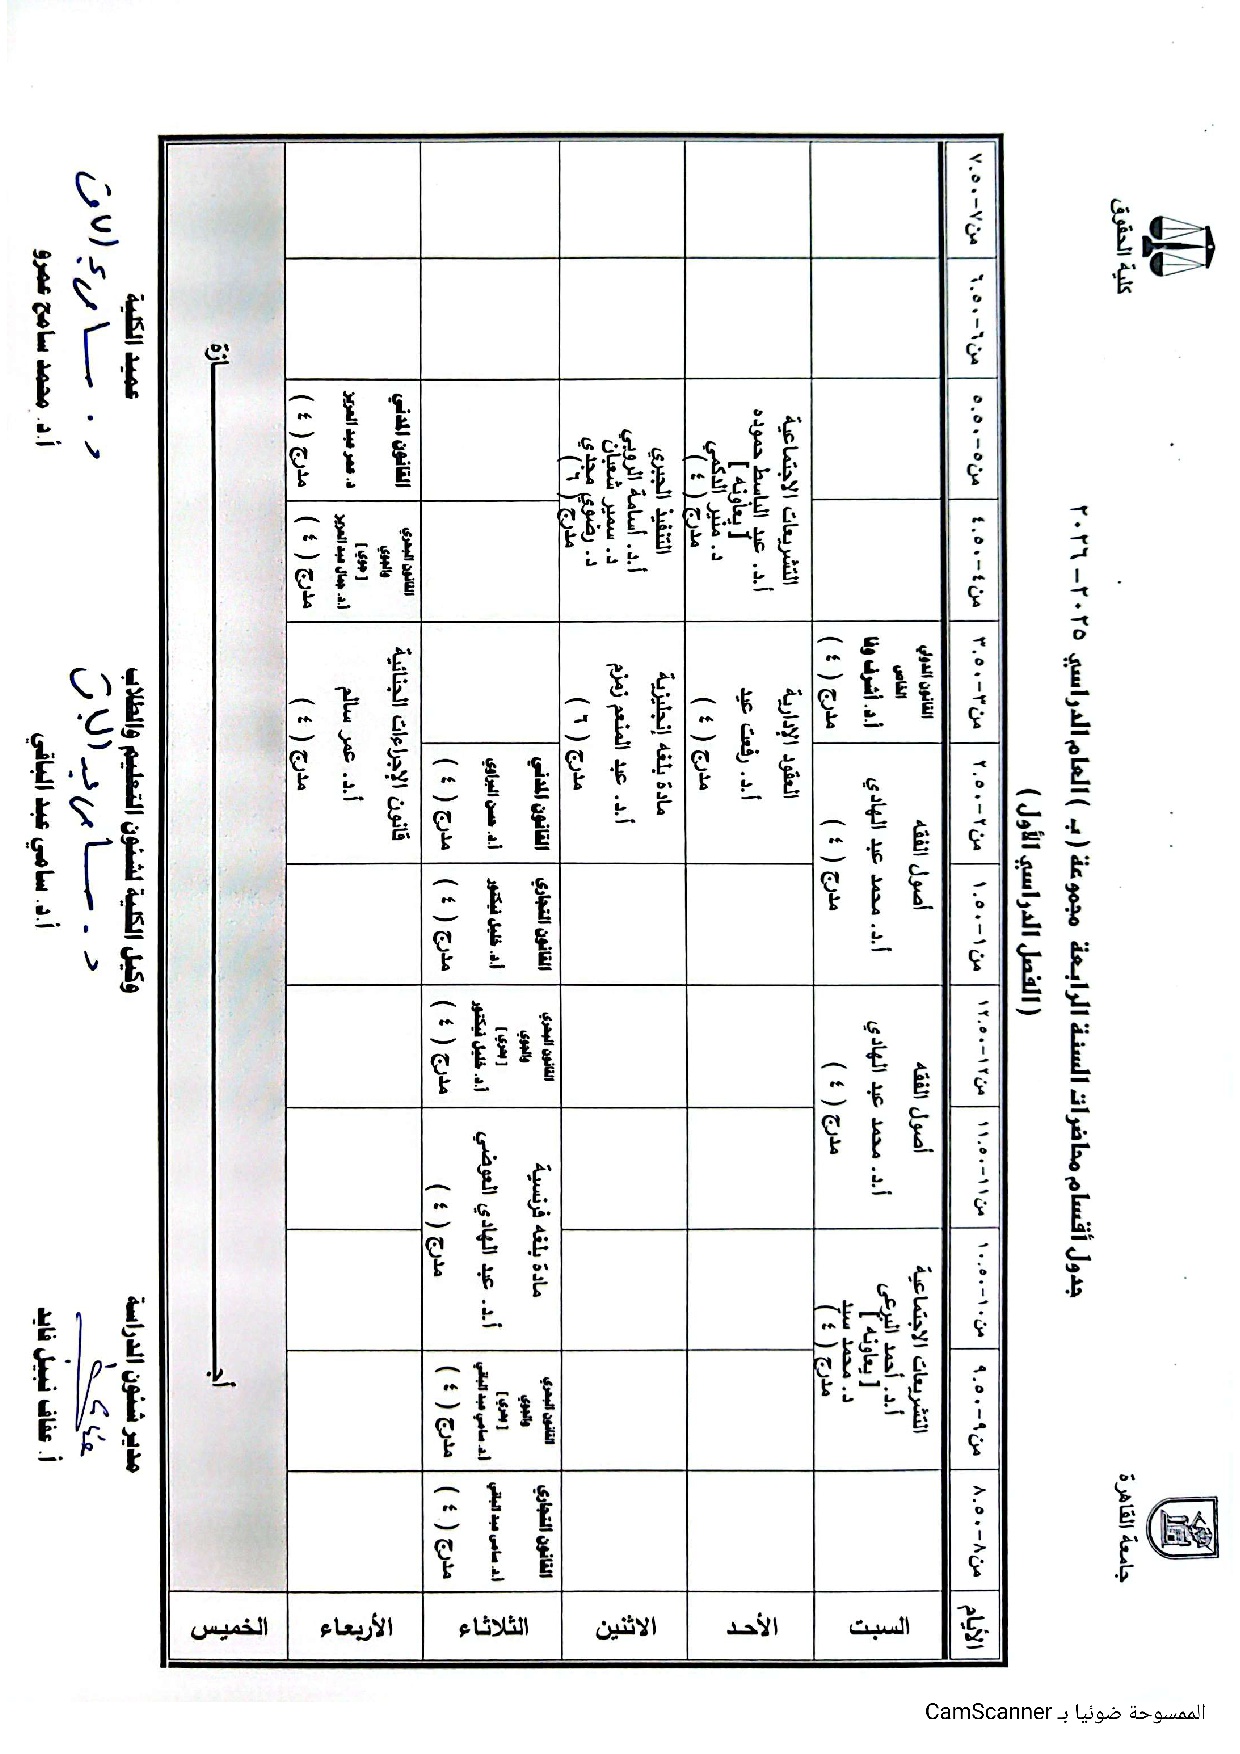 جامعة القاهرة
كلية الحقوق
جدول أقسام محاضرات السنة الرابعة مجموعة ( ب ) العام الدراسي ٢٠٢٥-٢٠٢٦
( الفصل الدراسي الأول )
الأيام
من ٨-٨.٥٠
من ٩-٩.٥٠
من ١٠-١٠.٥٠
من ١١-١١.٥٠
من ١٢-١٢.٥٠
من ١-١.٥٠
من ٢-٢.٥٠
من ٣-٣.٥٠
من ٤-٤.٥٠
من ٥-٥.٥٠
من ٦-٦.٥٠
من ٧-٧.٥٠
السبت
التشريعات الاجتماعية
أ.د. أحمد البرعى
[ يعاونه ]
د. محمد سيد
مدرج ( ٤ )
أصول الفقه
أ.د. محمد عبد الهادي
مدرج ( ٤ )
أصول الفقه
أ.د. محمد عبد الهادي
مدرج ( ٤ )
القانون الدولي
الخاص
أ.د. أشرف وفا
مدرج ( ٤ )
الأحد
العقود الإدارية
أ.د. رفعت عيد
مدرج ( ٤ )
التشريعات الاجتماعية
أ.د. عبد الباسط حموده
[ يعاونه ]
د. منير الدكمي
مدرج ( ٤ )
الاثنين
مادة بلغه إنجليزية
أ.د. عبد المنعم زمزم
مدرج ( ٦ )
التنفيذ الجبري
أ.د. أسامة الروبي
د. سمير شعبان
د. رضوي مجدي
مدرج ( ٦ )
الثلاثاء
القانون التجاري
أ.د. سامى عبد الباقي
مدرج ( ٤ )
القانون البحري
والجوي
[ بحري ]
أ.د. سامي عبد الباقي
مدرج ( ٤ )
مادة بلغه فرنسية
أ.د. عبد الهادي العوضي
مدرج ( ٤ )
القانون البحري
والجوي
[ بحري ]
أ.د. خليل فيكتور
مدرج ( ٤ )
القانون التجاري
أ.د. خليل فيكتور
مدرج ( ٤ )
القانون المدني
أ.د. حسن البراوي
مدرج ( ٤ )
الأربعاء
قانون الإجراءات الجنائية
أ.د. عمر سالم
مدرج ( ٤ )
القانون البحري
والجوي
[ جوي ]
أ.د. جمال عبد العزيز
مدرج ( ٤ )
القانون المدني
د. عمر عبد العزيز
مدرج ( ٤ )
الخميس
أجـــازة
مدير شئون الدراسة
أ. عفاف نبيل فايد
وكيل الكلية لشئون التعليم والطلاب
أ.د. سامي عبد الباقي
عميد الكلية
أ.د. محمد سامح عمرو
الممسوحة ضوئيا بـ CamScanner